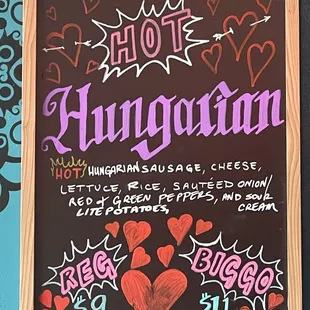 HOT
Hungarian
Mildly
HOT HUNGARIAN SAUSAGE, CHEESE,
LETTUCE, RICE, SAUTÉED ONION/
RED & GREEN PEPPERS, AND SOUR
LITE POTATOES, CREAM
REG BIGGO
$9 $11